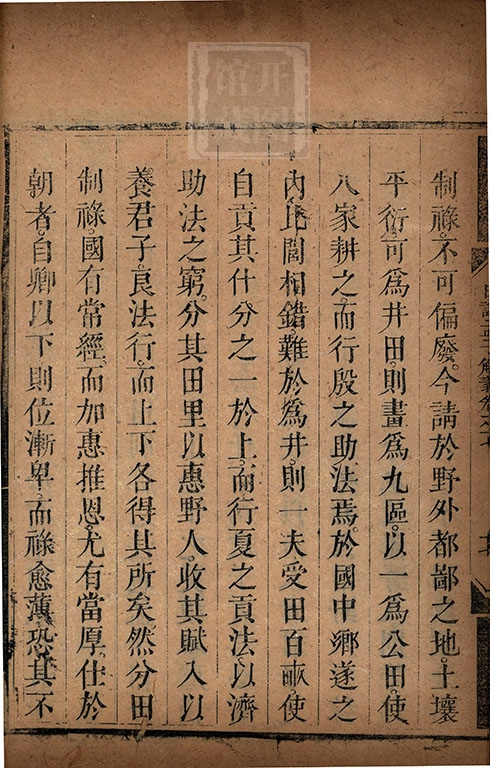 制祿不可偏廢。今請於野外都鄙之地。土壤
平衍。可爲井田則畫爲九區。以一爲公田。使
八家耕之。而行殷之助法焉。於國中鄉遂之
內。比閭相錯難於爲井。則一夫受田百畝。使
自貢其什分之一於上。而行夏之貢法。以濟
助法之窮。分其田里以惠野人。收其賦入以
養君子。良法行。而上下各得其所矣。然分田
制祿。國有常經。而加惠推恩。尤有當厚。仕於
朝者。自卿以下則位漸卑。而祿愈薄。恐其不